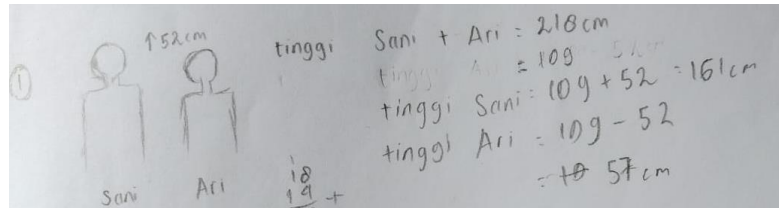 ①
↑52cm
Sani
Ari
tinggi Sani + Ari = 218 cm
= 109
tinggi Sani = 109 + 52 = 161 cm
tinggi Ari = 109 - 52
= 57 cm
18
19 +